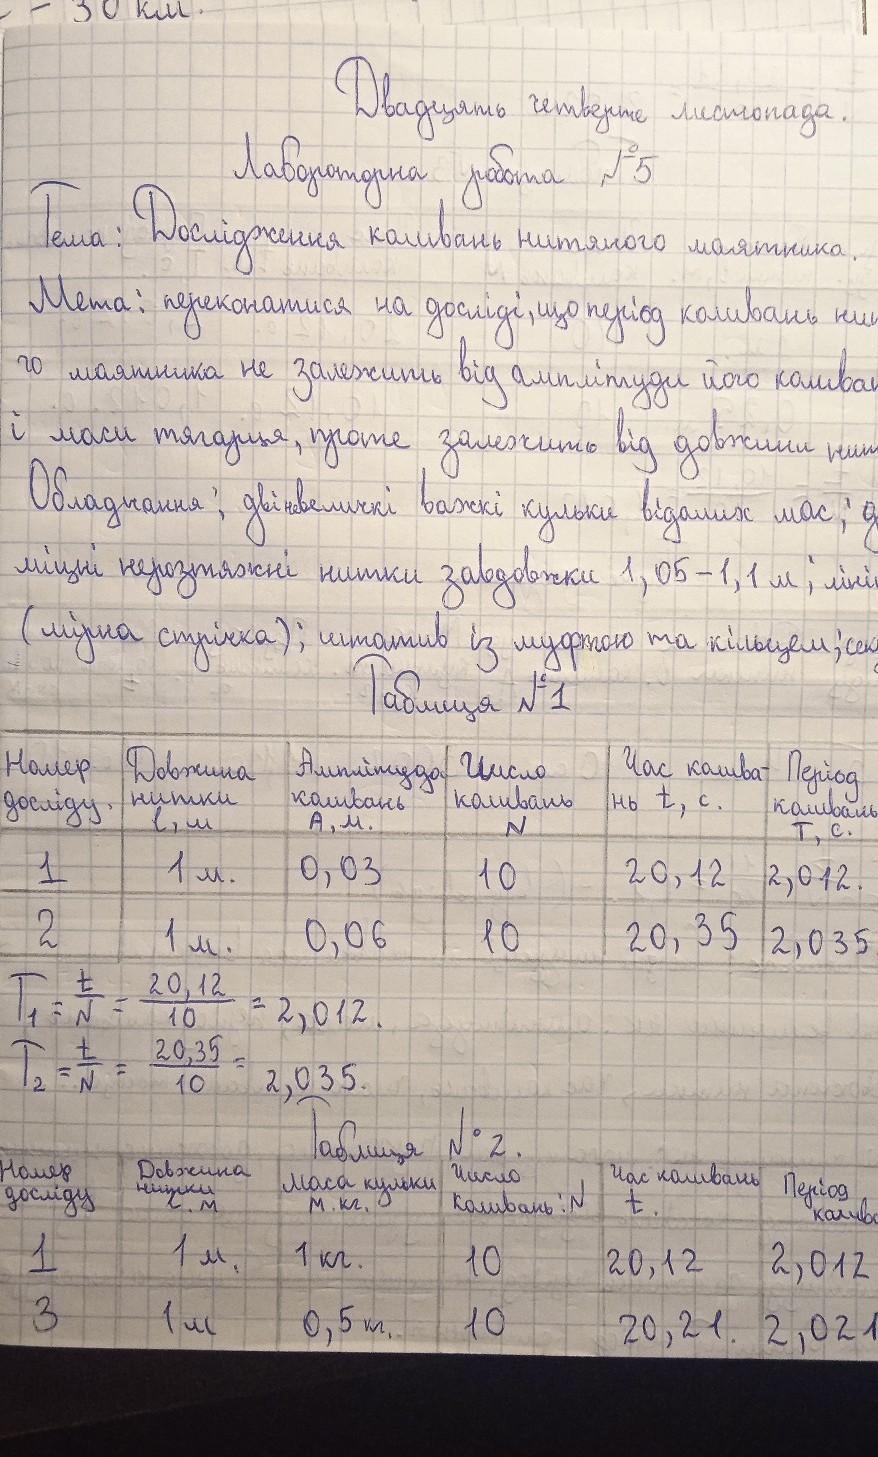 - 30 км.
Двадцять четверте листопада.
Лабораторна робота №5
Тема: Дослідження коливань нитяного маятника.
Мета: переконатися на досліді, що період коливань нит
го маятника не залежить від амплітуди його коливан
і маси тягарця, проте залежить від довжини нит
Обладнання: дві невеличкі важкі кульки відомих мас; д
міцні нерозтяжні нитки завдовжки 1,05-1,1 м; ліні
(мірна стрічка); штатив із муфтою та кільцем; сек
Таблиця №1
Номер досліду. Довжина нитки l, м Амплітуда коливань А, м. Число коливань N Час коливань t, с. Період коливань T, с.
1 1 м. 0,03 10 20,12 2,012.
2 1 м. 0,06 10 20,35 2,035
T1 = t/N = 20,12/10 = 2,012.
T2 = t/N = 20,35/10 = 2,035.
Таблиця №2.
Номер досліду Довжина нитки l. м Маса кульки м. кг. Число коливань: N Час коливань t. Період колива
1 1 м. 1 кг. 10 20,12 2,012
3 1 м 0,5 кг. 10 20,21. 2,021